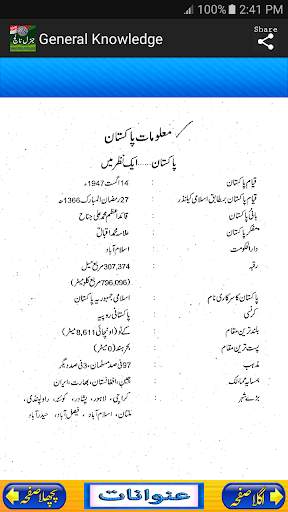 2:41 PM
General Knowledge
Share
معلومات پاکستان
پاکستان ..... ایک نظر میں
قیام پاکستان : 14 اگست 1947ء
قیام پاکستان بمطابق اسلامی کیلنڈر : 27 رمضان المبارک 1366ھ
بانی پاکستان : قائد اعظم محمد علی جناح
مفکر پاکستان : علامہ محمد اقبال
دارالحکومت : اسلام آباد
رقبہ : 307,374 مربع میل
(796,096 مربع کلومیٹر)
پاکستان کا سرکاری نام : اسلامی جمہوریہ پاکستان
کرنسی : پاکستانی روپیہ
بلند ترین مقام : کے ٹو (اونچائی 8,611 میٹر)
پست ترین مقام : بحر ہند (0 میٹر)
مذہب : 97 فی صد مسلمان، 3 فی صد دیگر
ہمسایہ ممالک : چین، افغانستان، بھارت، ایران
بڑے شہر : کراچی، لاہور، پشاور، کوئٹہ، راولپنڈی،
ملتان، اسلام آباد، فیصل آباد، حیدرآباد
اگلا صفحہ
عنوانات
پچھلا صفحہ